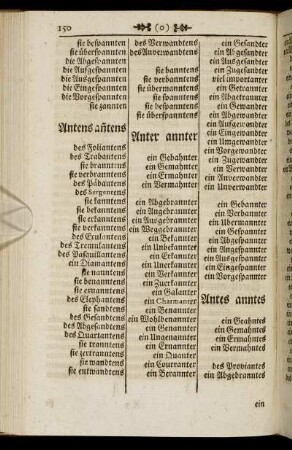 150
(o)
sie bespannten
sie überspannten
die Abgespannten
die Aufgespannten
die Ausgespannten
die Eingespannten
die Vorgespannten
sie zannten
Antens añtens
des Foliantens
des Trabantens
sie branntens
sie verbranntens
des Pädantens
des Sergentens
sie kanntens
sie bekanntens
sie erkanntens
sie verkanntens
des Exulantens
des Tremulantens
des Pasquillantens
ein Diamantens
sie nanntens
sie benanntens
sie ernanntens
des Elephantens
sie sandtens
des Gesandtens
des Abgesandtens
des Quartantens
sie tranntens
sie zertranntens
sie wandtens
sie entwandtens
des Verwandtens
des Anverwandtens
sie banntens
sie verbanntens
sie übermanntens
sie spanntens
sie bespanntens
sie überspanntens
Anter annter
ein Gebahnter
ein Gemahnter
ein Ermahnter
ein Vermahnter
ein Abgebrannter
ein Angebrannter
ein Ausgebrannter
ein Weggebrannter
ein Bekannter
ein Unbekannter
ein Erkannter
ein Unerkannter
ein Verkannter
ein Zuerkannter
ein Galanter
ein Charmanter
ein Benannter
ein Wohlbenannter
ein Genannter
ein Ungenannter
ein Ernannter
ein Quanter
ein Couranter
ein Berannter
ein Gesandter
ein Abgesandter
ein Ausgesandter
ein Zugesandter
viel importanter
ein Getrannter
ein Abgetrannter
ein Gewandter
ein Abgewandter
ein Angewandter
ein Ausgewandter
ein Eingewandter
ein Umgewandter
ein Vorgewandter
ein Zugewandter
ein Verwandter
ein Anverwandter
ein Unverwandter
ein Gebannter
ein Verbannter
ein Übermannter
ein Gespannter
ein Abgespannter
ein Angespannter
ein Ausgespannter
ein Eingespannter
ein Vorgespannter
Antes anntes
ein Geahntes
ein Gemahntes
ein Ermahntes
ein Vermahntes
des Proviantes
ein Abgebranntes
ein